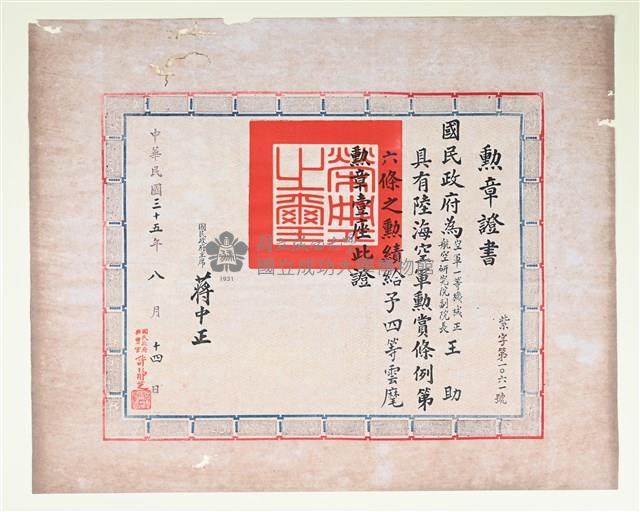 勲章證書
紫字第一〇六一號
國民政府為空軍一等機械正航空研究院副院長王助
具有陸海空軍勲賞條例第
六條之勲績給予四等雲麾
勲章壹座此證
榮典之璽
國民政府主席 蔣中正
中華民國三十五年八月十四日
國民政府
國立成功大學博物館
1931